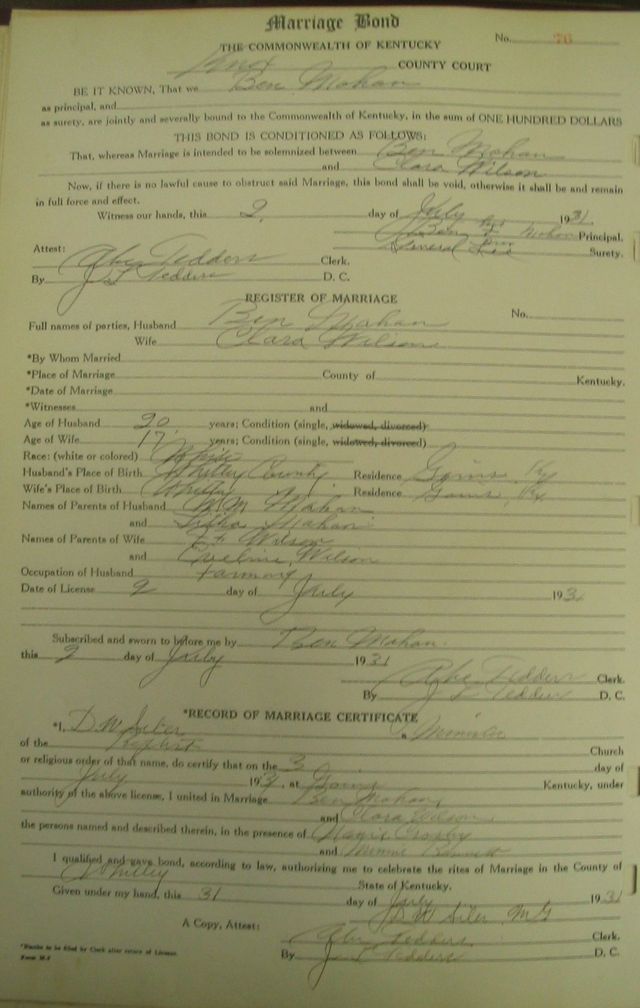 Marriage Bond
No. 76
THE COMMONWEALTH OF KENTUCKY
Knox COUNTY COURT
BE IT KNOWN, That we Ben Mahan
as principal, and
as surety, are jointly and severally bound to the Commonwealth of Kentucky, in the sum of ONE HUNDRED DOLLARS
THIS BOND IS CONDITIONED AS FOLLOWS:
That, whereas Marriage is intended to be solemnized between Ben Mahan
and Clara Wilson
Now, if there is no lawful cause to obstruct said Marriage, this bond shall be void, otherwise it shall be and remain
in full force and effect.
Witness our hands, this 2 day of July 1931
Ben Mahan Principal.
General Lee Surety.
Attest:
Abe Tedders Clerk.
By J L Tedders D. C.
REGISTER OF MARRIAGE
No.
Full names of parties, Husband Ben Mahan
Wife Clara Wilson
*By Whom Married
*Place of Marriage County of Kentucky.
*Date of Marriage
*Witnesses and
Age of Husband 20 years; Condition (single, widowed, divorced)
Age of Wife 17 years; Condition (single, widowed, divorced)
Race: (white or colored) White
Husband's Place of Birth Whitley County Residence Goins, Ky
Wife's Place of Birth Whitley Residence Goins, Ky
Names of Parents of Husband M M Mahan
and Mahan
Names of Parents of Wife Wilson
and Eveline Wilson
Occupation of Husband Farming
Date of License 2 day of July 1931
Subscribed and sworn to before me by Ben Mahan
this 2 day of July 1931
Abe Tedders Clerk.
By J L Tedders D. C.
*RECORD OF MARRIAGE CERTIFICATE
*I, D W Siler a Minister
of the Baptist Church
or religious order of that name, do certify that on the 3 day of
July 193, at Goins Kentucky, under
authority of the above license, I united in Marriage Ben Mahan
and Clara Wilson
the persons named and described therein, in the presence of
and Minnie Bennett
I qualified and gave bond, according to law, authorizing me to celebrate the rites of Marriage in the County of
Whitley State of Kentucky.
Given under my hand, this 31 day of July 1931
D W Siler MG
A Copy, Attest:
Abe Tedders Clerk.
By J L Tedders D. C.
*Blanks to be filled by Clerk after return of License.